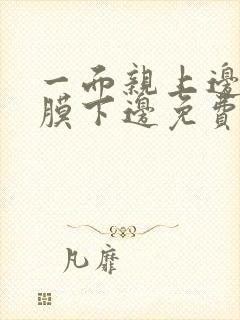 一而親上邊
膜下邊免費
凡靡